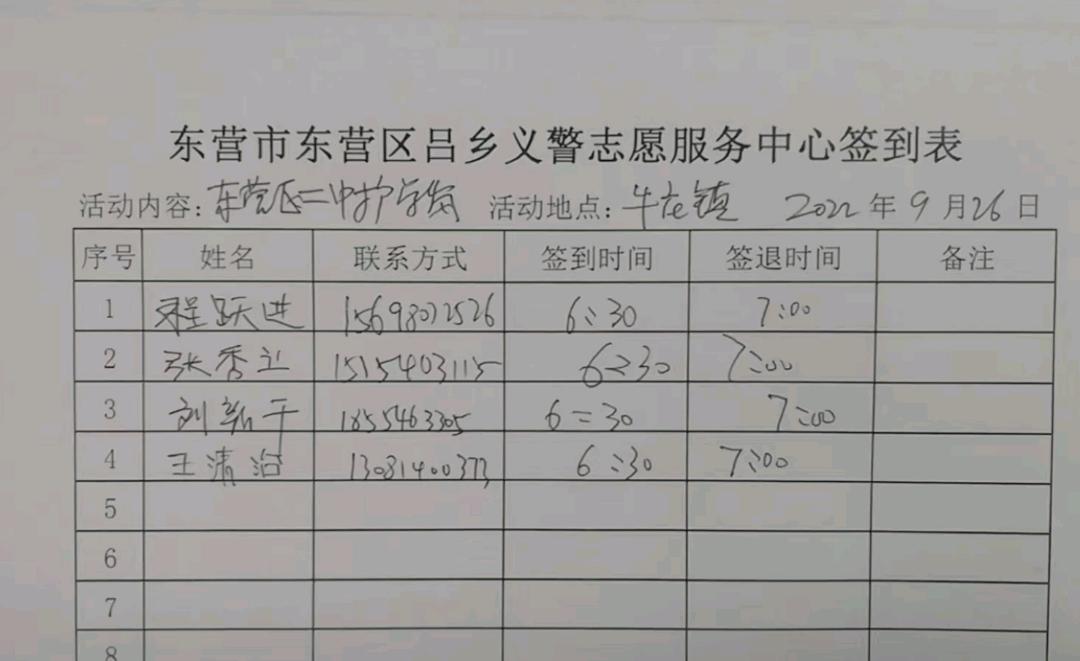 东营市东营区吕乡义警志愿服务中心签到表
活动内容:东营区二中护学岗 活动地点:牛庄镇 2022年9月26日
序号 姓名 联系方式 签到时间 签退时间 备注
1 程跃进 15698072526 6:30 7:00
2 张秀立 15154603115 6:30 7:00
3 刘新干 1855463305 6:30 7:00
4 王清治 13081400373 6:30 7:00
5
6
7
8